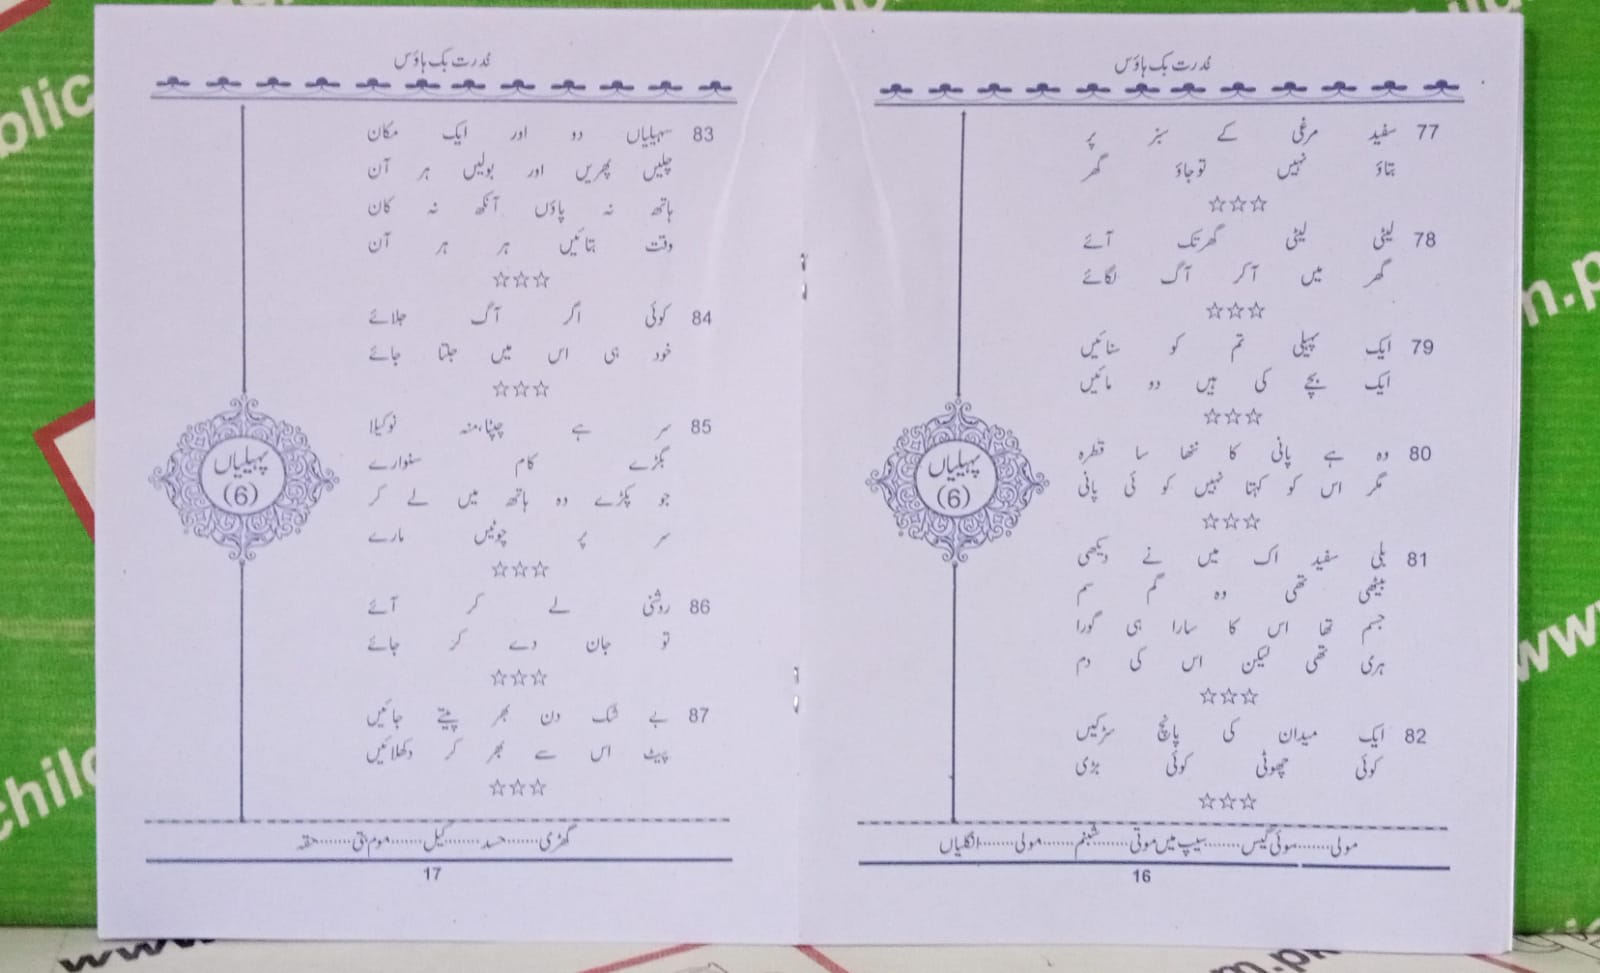 قدرت بک ہاؤس
77 سفید مرغی کے سبز پر
بتاؤ نہیں توجاؤ گھر
☆☆☆
78 لیٹی لیٹی گھرتک آئے
گھر میں آکر آگ لگائے
☆☆☆
79 ایک پہیلی تم کو سنائیں
ایک بچے کی ہیں دو مائیں
☆☆☆
80 وہ ہے پانی کا ننھا سا قطرہ
مگر اس کو کہتا نہیں کو ئی پانی
☆☆☆
81 بلی سفید اک میں نے دیکھی
بیٹھی تھی وہ گم سم
جسم تھا اس کا سارا ہی گورا
ہری تھی لیکن اس کی دم
☆☆☆
82 ایک میدان کی پانچ سڑکیں
کوئی چھوٹی کوئی بڑی
☆☆☆
پہیلیاں
(6)
مولی.......سوئی گیس.......سیپ میں موتی.......شبنم.......مولی.......انگلیاں
16
قدرت بک ہاؤس
83 سہیلیاں دو اور ایک مکان
چلیں پھریں اور بولیں ہر آن
ہاتھ نہ پاؤں آنکھ نہ کان
وقت بتائیں ہر ہر آن
☆☆☆
84 کوئی اگر آگ جلائے
خود ہی اس میں جلتا جائے
☆☆☆
85 سر ہے چپٹا،منہ نوکیلا
بگڑے کام سنوارے
جو پکڑے وہ ہاتھ میں لے کر
سر پر چوٹیں مارے
☆☆☆
86 روشنی لے کر آئے
تو جان دے کر جائے
☆☆☆
87 بے شک دن بھر پیتے جائیں
پیٹ اس سے بھر کر دکھلائیں
☆☆☆
پہیلیاں
(6)
گھڑی.......حسد.......کیل.......موم بتی.......حقہ
17